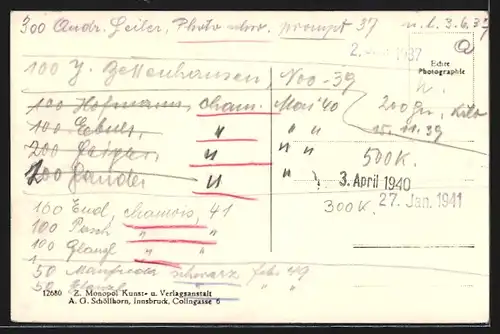 300 Andr. Leiter, Photo schw. prompt 37 n. l. 3.6.37
2. Juni 1937
Echte
Photographie
100 J. Bettenhausen, Nov - 39
100 Hofmann, cham. Mai '40
200 gr, Kilo
15. 11. 39
100 " " "
200 Geiger, " " "
500 K.
200 Gander " "
3. April 1940
300 K. 27. Jan. 1941
100 End, chamois, 41
100 Posch " "
100 Glanzl " "
50 Manfreda schwarz feb. 49
50 Glanzl " "
12680 Z. Monopol Kunst- u. Verlagsanstalt
A. G. Schöllhorn, Innsbruck, Colingasse 6